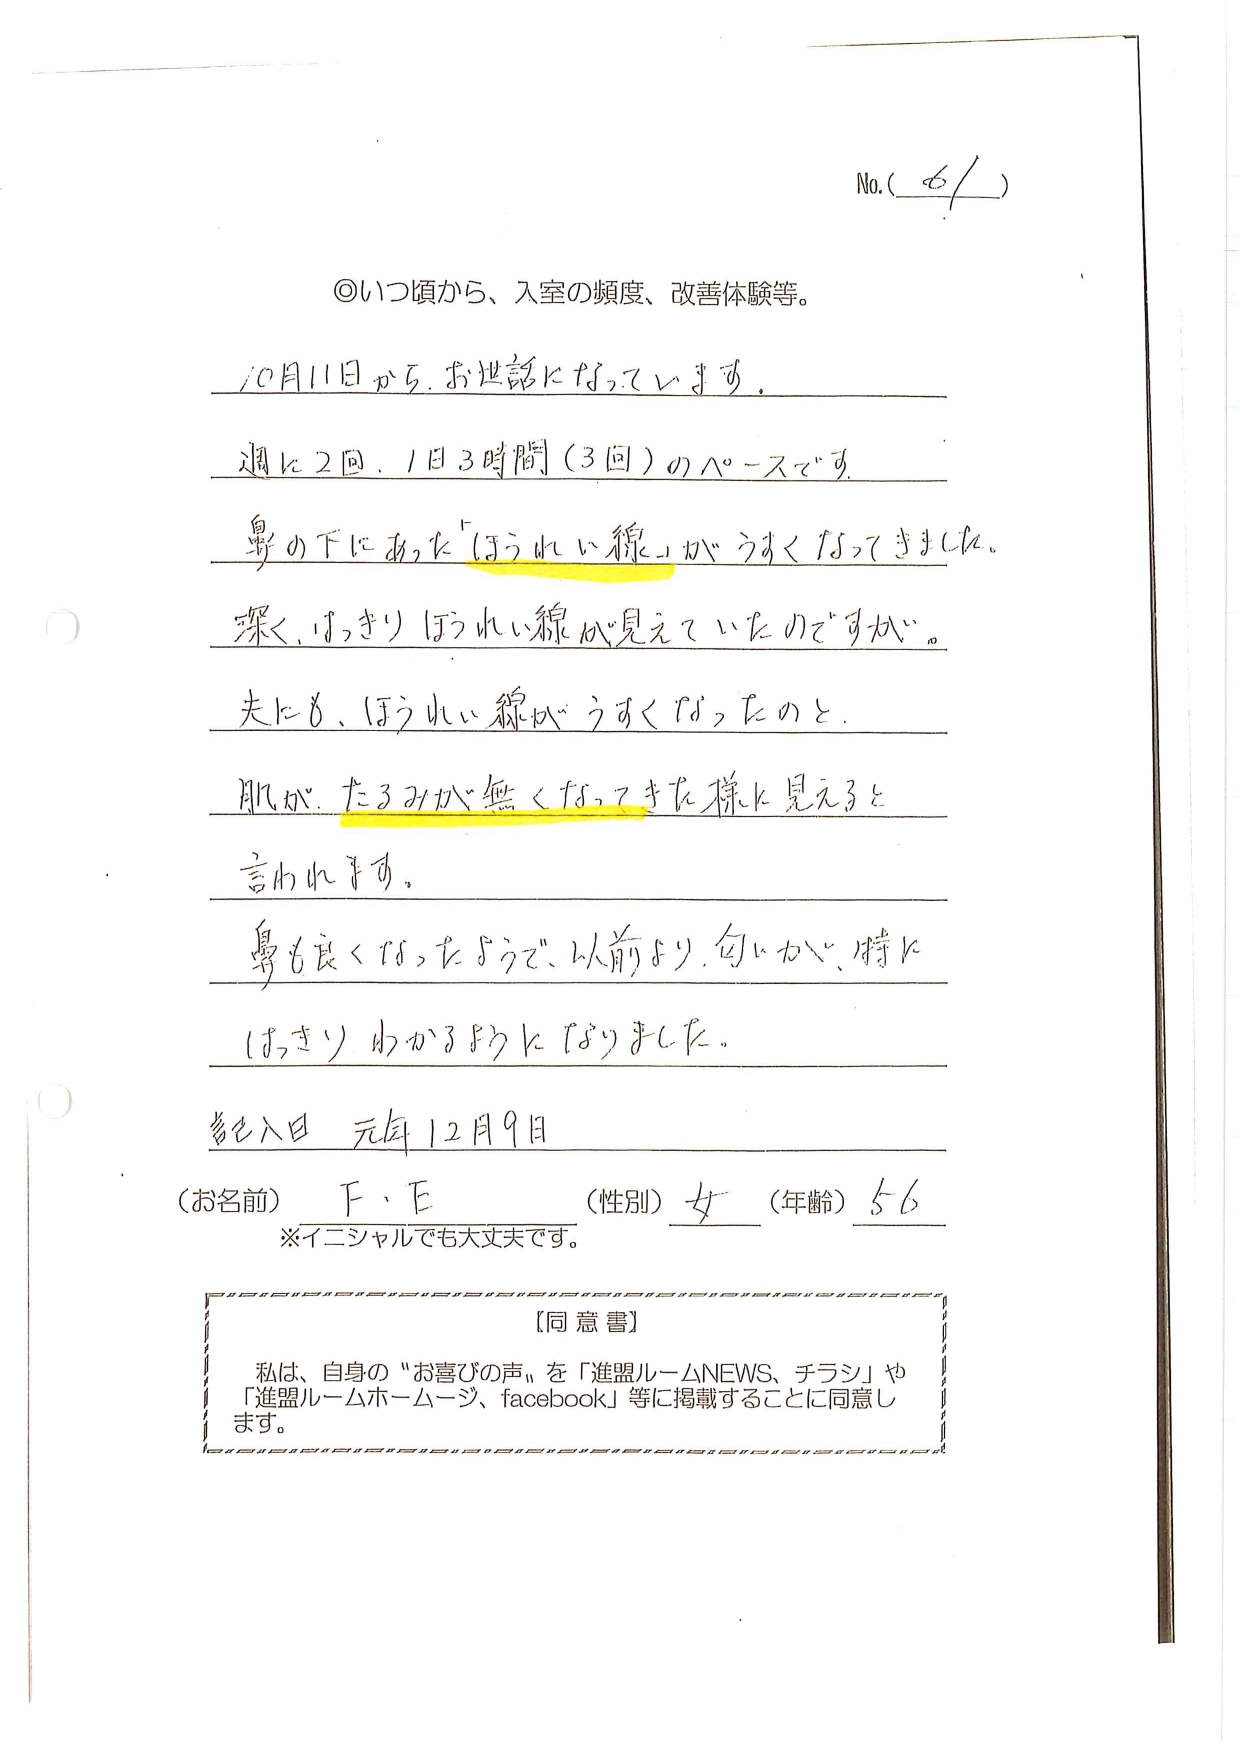 No.( 61 )
◎いつ頃から、入室の頻度、改善体験等。
10月11日から、お世話になっています。
週に2回、1日3時間(3回)のペースです。
鼻の下にあった「ほうれい線」がうすくなってきました。
深く、はっきりほうれい線が見えていたのですが。
夫にも、ほうれい線がうすくなったのと、
肌が、たるみが無くなってきた様に見えると
言われます。
鼻も良くなったようで、以前より、匂いが、特に
はっきりわかるようになりました。
記入日 元年12月9日
(お名前) F・E (性別) 女 (年齢) 56
※イニシャルでも大丈夫です。
【同意書】
私は、自身の〝お喜びの声〟を「進盟ルームNEWS、チラシ」や
「進盟ルームホームージ、facebook」等に掲載することに同意し
ます。